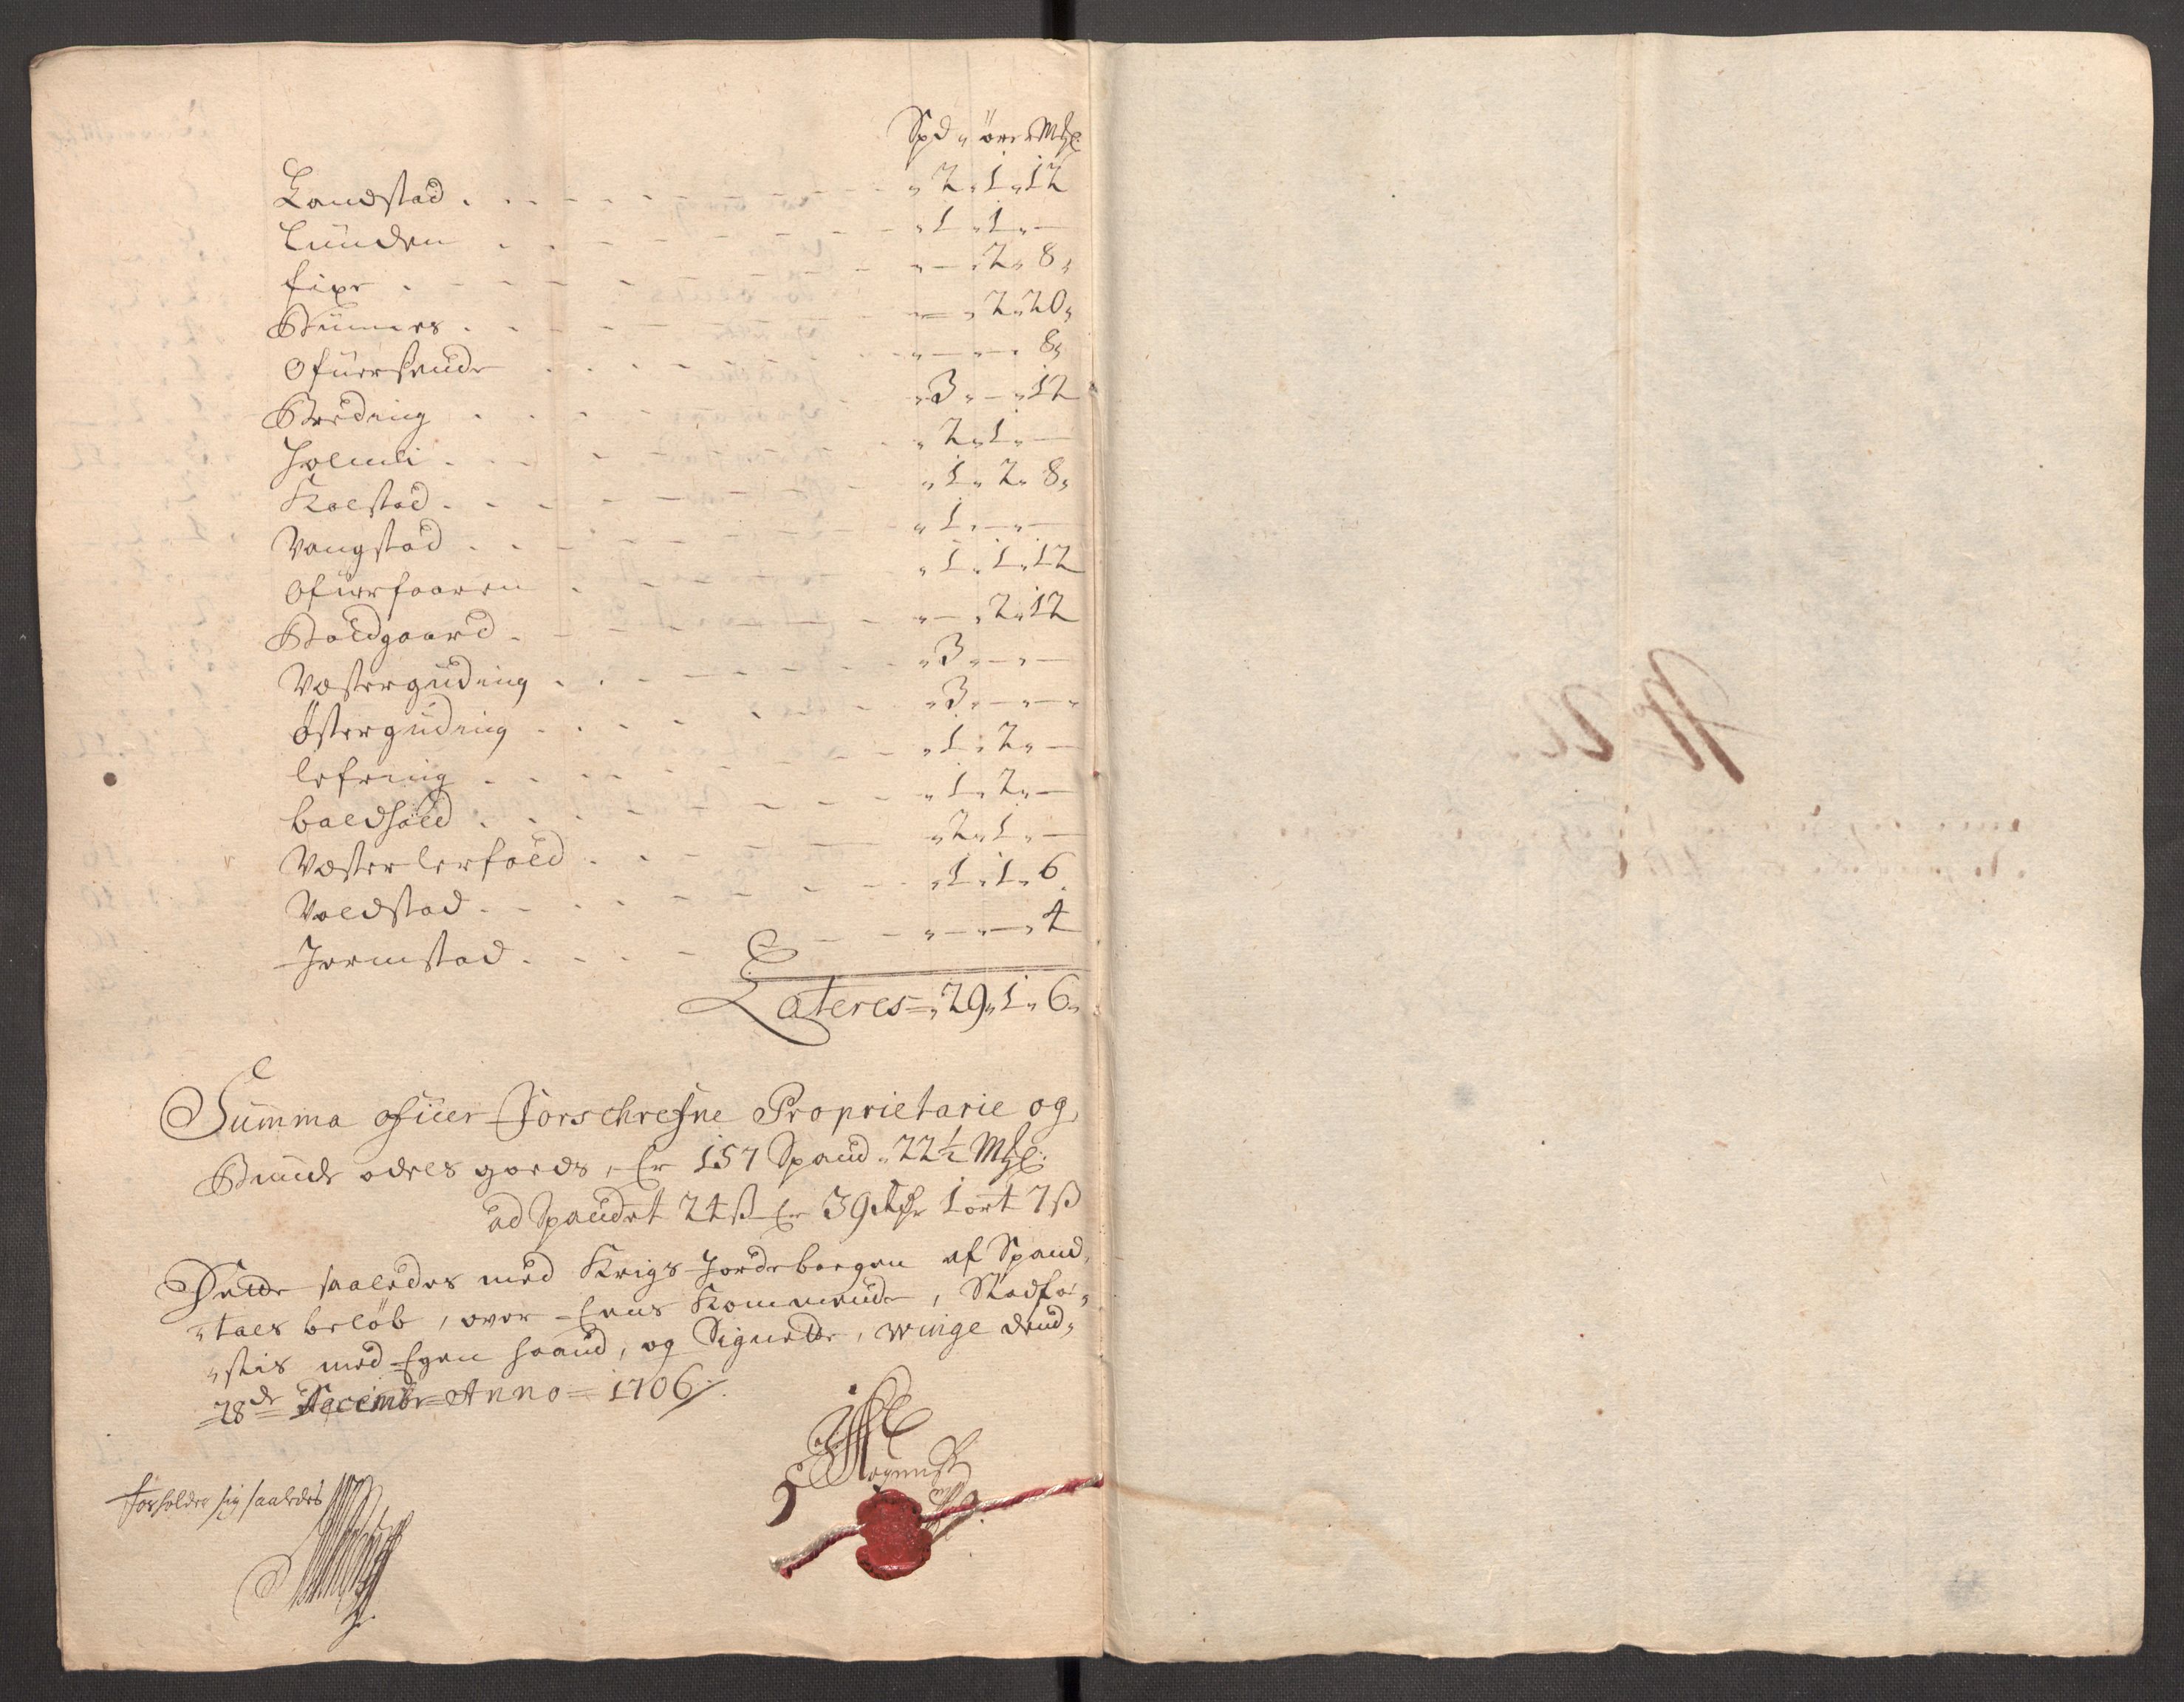 Spd „ örer Mkl.
Landstad . . . „ 2 „ 1 „ 12
Lunden . . . „ 1 „ 1 „ —
„ — „ 2 „ 8 „
Bunnes . . . „ — „ 2 „ 20 „
Ofuersende . . . „ — „ — „ 8 „
Breding . . . „ 3 „ — „ 12
Holmli . . . „ 2 „ 1 „ —
Kolstad . . . „ 1 „ 2 „ 8 „
Vangstad . . . „ 1 „ — „ —
Ofuerfaaren . . . „ 1 „ 1 „ 12
Boldgaard . . . „ — „ 2 „ 12
Vesterguding . . . „ 3 „ — „ —
Östergüding . . . „ 3 „ — „ — „
lefring . . . „ 1 „ 2 „ —
baldhold . . . „ 1 „ 2 „ —
Vesterlerfald . . . „ 2 „ 1 „ —
Voldstad . . . „ 1 „ 1 „ 6
Jermstad . . . „ — „ — „ 4
Lateres = „ 29 „ 1 „ 6 „
Summa ofuer Forschrefne Proprietarie og
Bunde odels goeds, Er 157 Spand „ 22½ Mkl:
ad Spandet 24 ß Er 39 Rdr 1 ort 7 ß
Dette saaledes med Krigs Jordebogen af Spand„
„tals beløb, over Eens Kommende, Stadfæ„
„stis med Egen haand, og Signette, Winge dend„
28de Decembr Anno = 1706 ⁄.
forholder sig saaledes